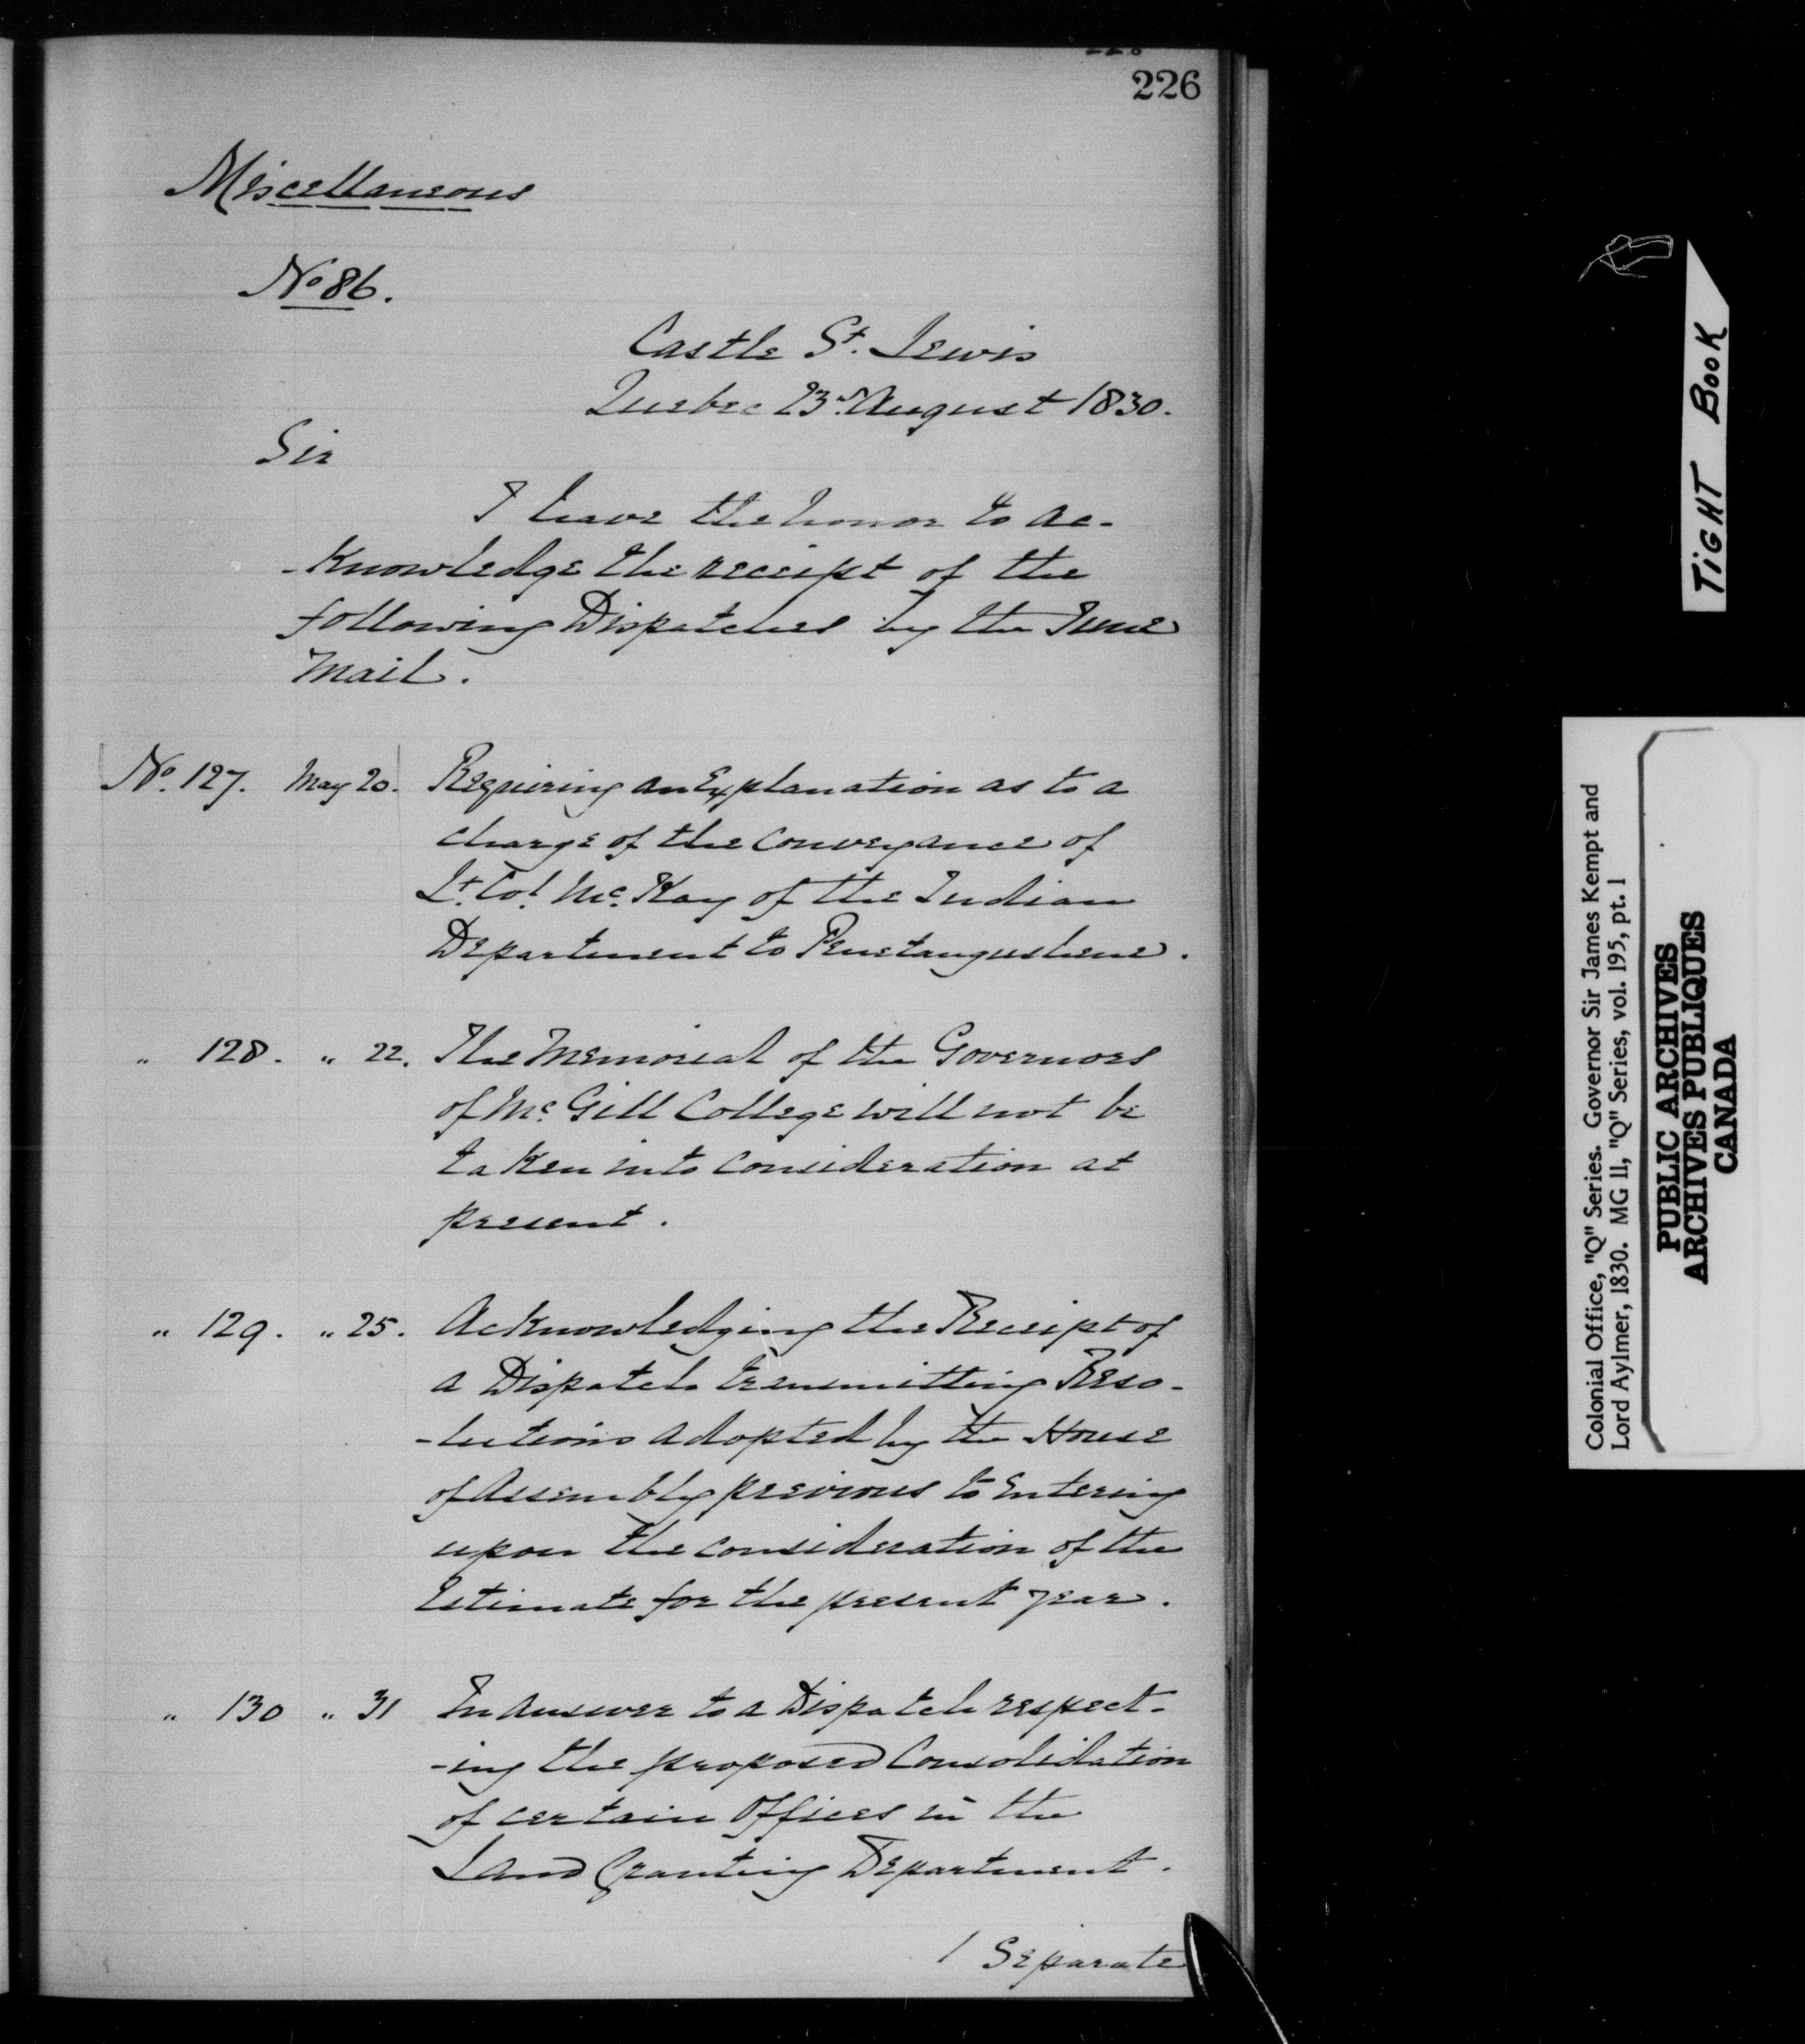 226
Miscellaneous
No 86.
Castle St. Lewis
Quebec 23d August 1830.
Sir
I have the honor to ac-
-knowledge the receipt of the
following Dispatches by the June
Mail.
No. 127. May 20. Requiring an Explanation as to a
charge of the conveyance of
Lt. Col. Mc. Kay of the Indian
Department to Penetangushene.
" 128. " 22. The Memorial of the Governors
of Mc. Gill College will not be
taken into consideration at
present.
" 129. " 25. Acknowledging the Receipt of
a Dispatch transmitting Reso-
-lutions adopted by the House
of Assembly previous to Entering
upon the consideration of the
Estimate for the present year.
" 130 " 31 In answer to a Dispatch respect-
-ing the proposed Consolidation
of certain Offices in the
Land Granting Department.
/ Separate
TIGHT BOOK
Colonial Office, "Q" Series. Governor Sir James Kempt and
Lord Aylmer, 1830. MG 11, "Q" Series, vol. 195, pt. 1
PUBLIC ARCHIVES
ARCHIVES PUBLIQUES
CANADA